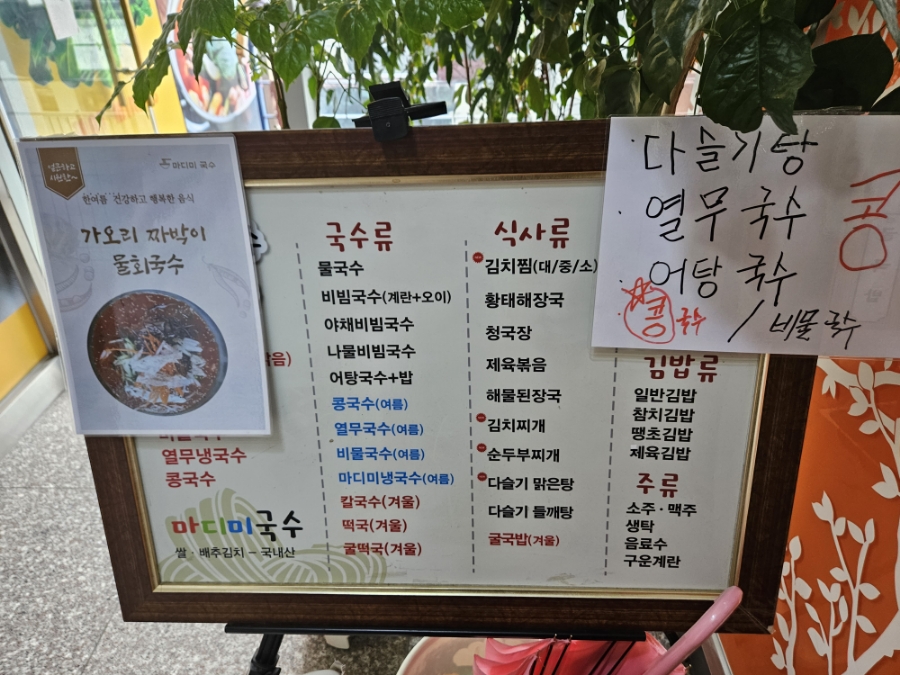 마디미 국수
한여름 건강하고 행복한 음식
가오리 짜박이
물회국수
열무냉국수
콩국수
마디미국수
쌀 · 배추김치 - 국내산
국수류
물국수
비빔국수(계란+오이)
야채비빔국수
나물비빔국수
어탕국수+밥
콩국수(여름)
열무국수(여름)
비물국수(여름)
마디미냉국수(여름)
칼국수(겨울)
떡국(겨울)
굴떡국(겨울)
식사류
김치찜(대/중/소)
황태해장국
청국장
제육볶음
해물된장국
김치찌개
순두부찌개
다슬기 맑은탕
다슬기 들깨탕
굴국밥(겨울)
다슬기탕
열무 국수
어탕 국수
콩국수 / 비물국수
김밥류
일반김밥
참치김밥
땡초김밥
제육김밥
주류
소주 · 맥주
생탁
음료수
구운계란